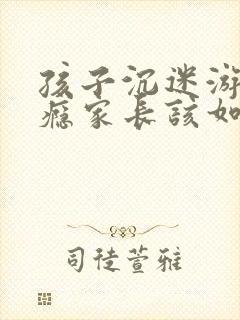 孩子沉迷游
瘾家长该如
司徒萱雅